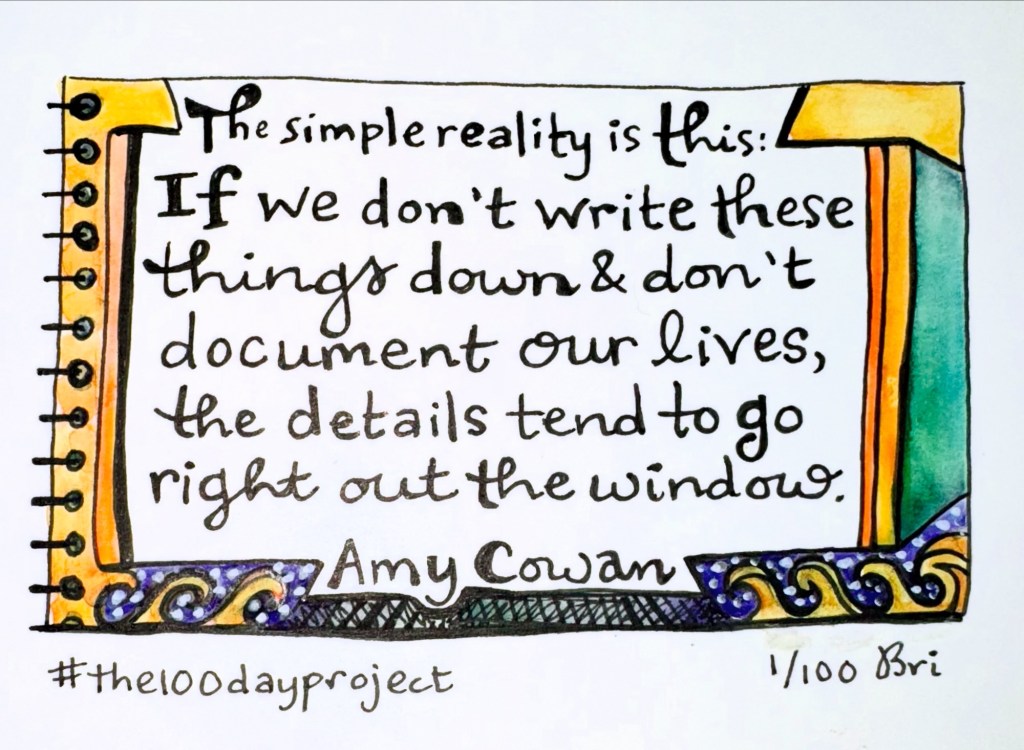 The simple reality is this:
If we don't write these
things down & don't
document our lives,
the details tend to go
right out the window.
Amy Cowan
#the100dayproject
1/100 Bri